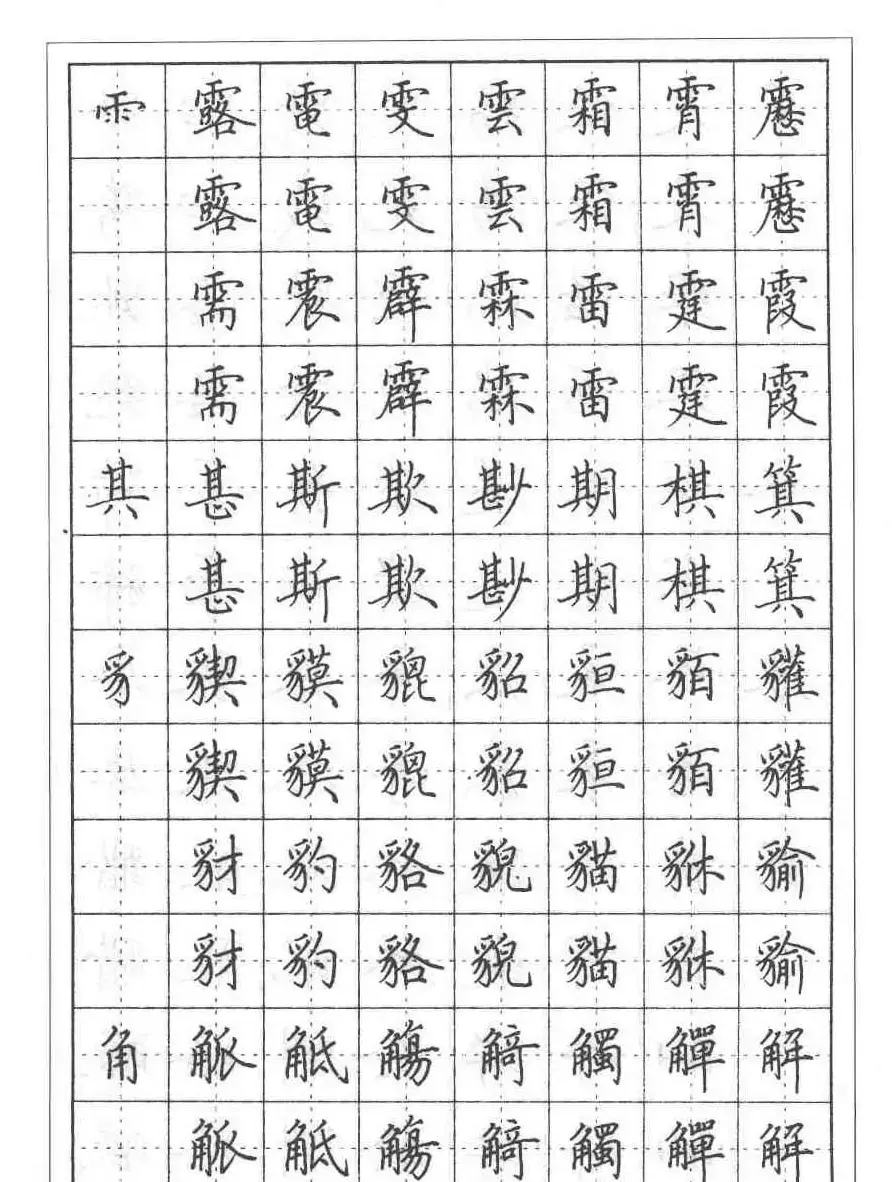 ⻗ 露 電 雯 雲 霜 霄
露 電 雯 雲 霜 霄
需 震 霹 霖 雷 霆 霞
需 震 霹 霖 雷 霆 霞
其 甚 斯 欺 尠 期 棋 箕
甚 斯 欺 尠 期 棋 箕
豸 貘 貔 貂 貆 貊 貛
貘 貔 貂 貆 貊 貛
豺 豹 貉 貌 貓 貅 貐
豺 豹 貉 貌 貓 貅 貐
角 觚 觝 觴 觭 觸 觶 解
觚 觝 觴 觭 觸 觶 解